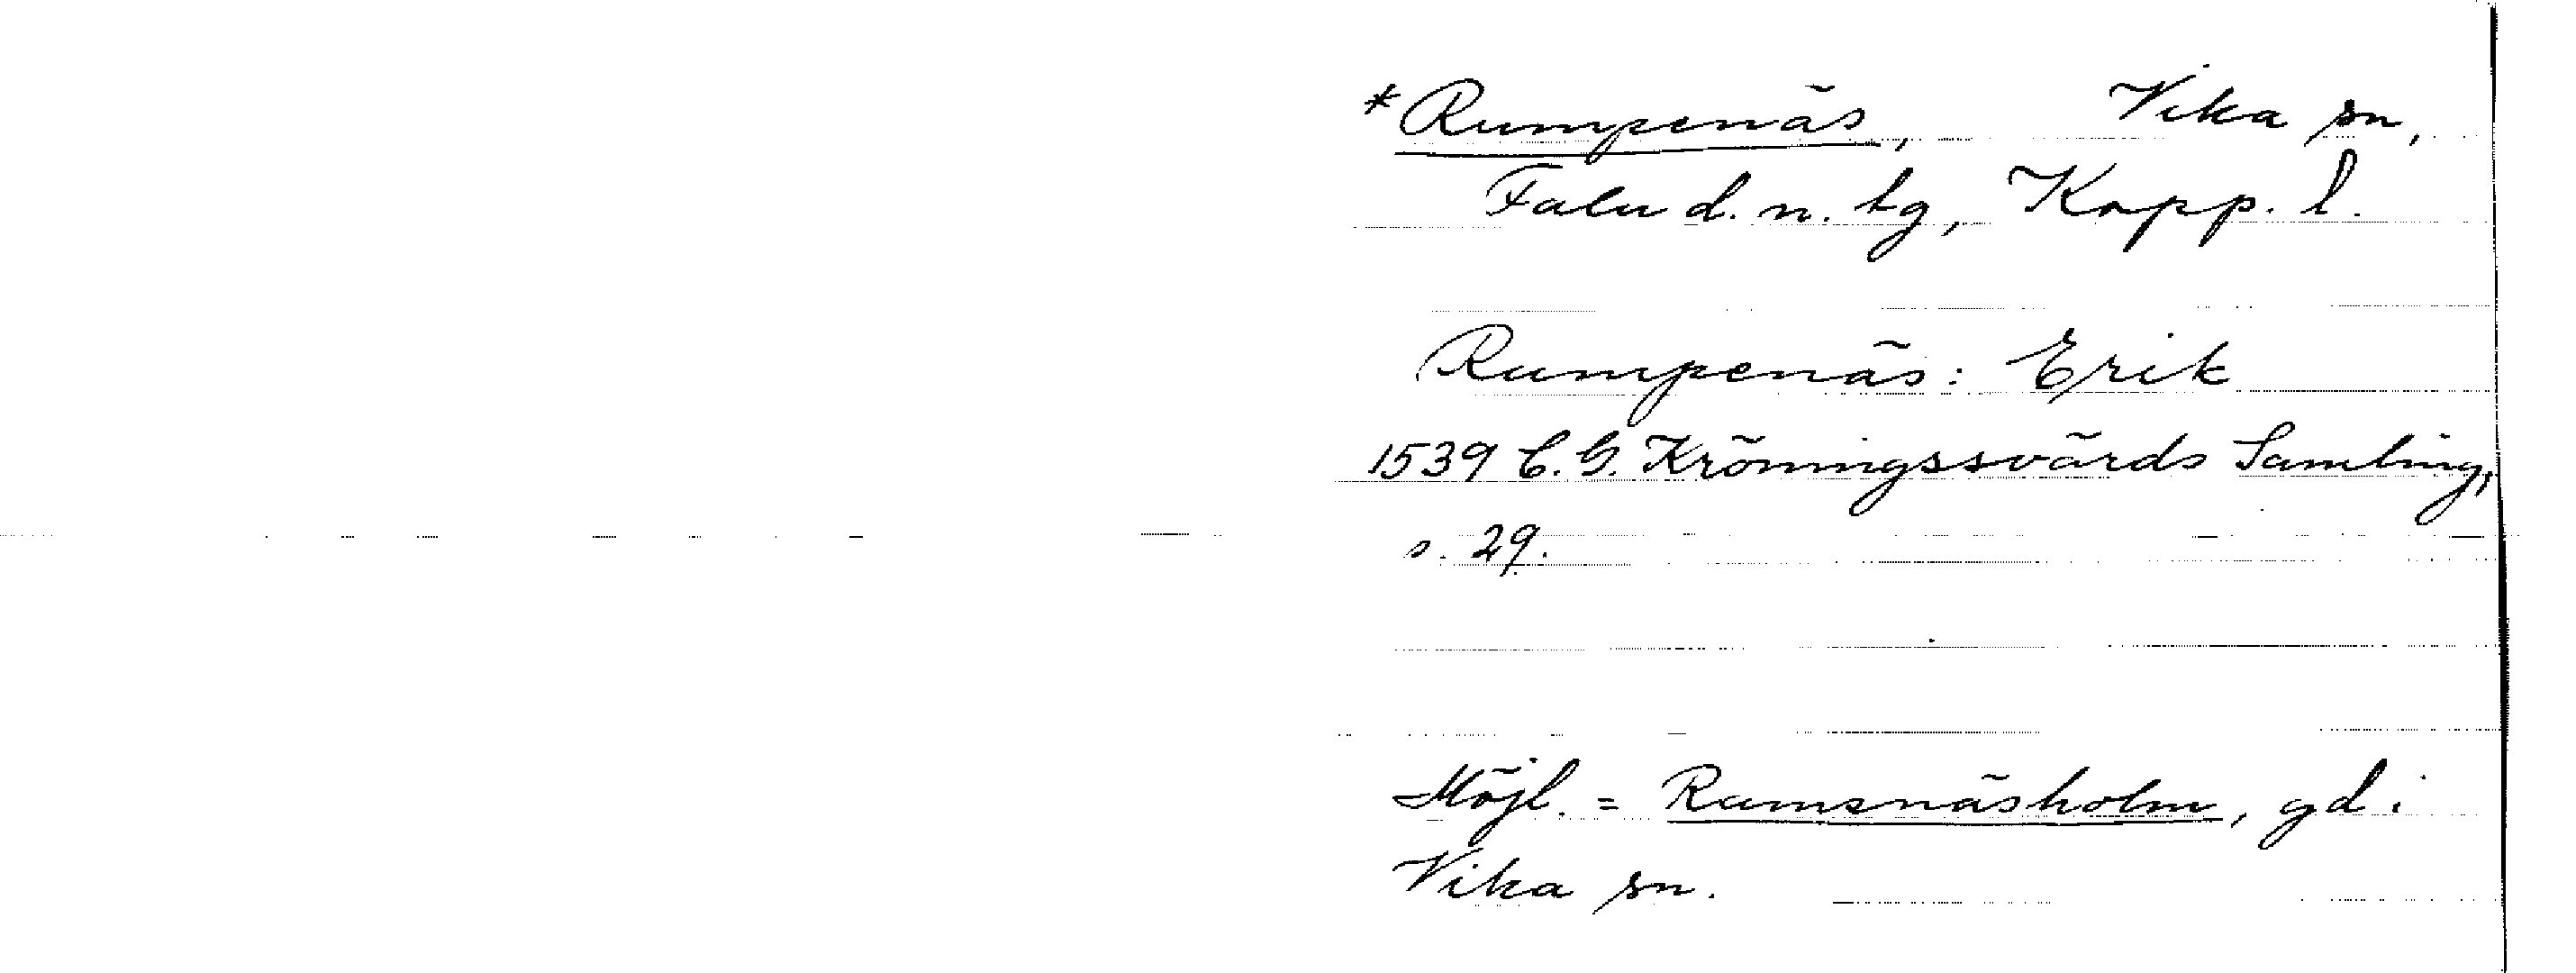 *Rumpenäs, Vika sn,
Falu d. n. tg, Kopp. l.
Rumpenäs: Erik
1539 C. G. Kröningssvärds Samling,
s. 29.
Möjl. = Rumsnäsholm, gd i
Vika sn.